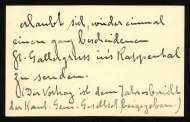 erlaubt sich, wieder einmal
einen ganz bescheidenen
St. Gallergruss in's Kappental
zu senden.
(Der Vortrag ist dem Jahresbericht
der Kant. Gem. Gesellsch. beigegeben.)